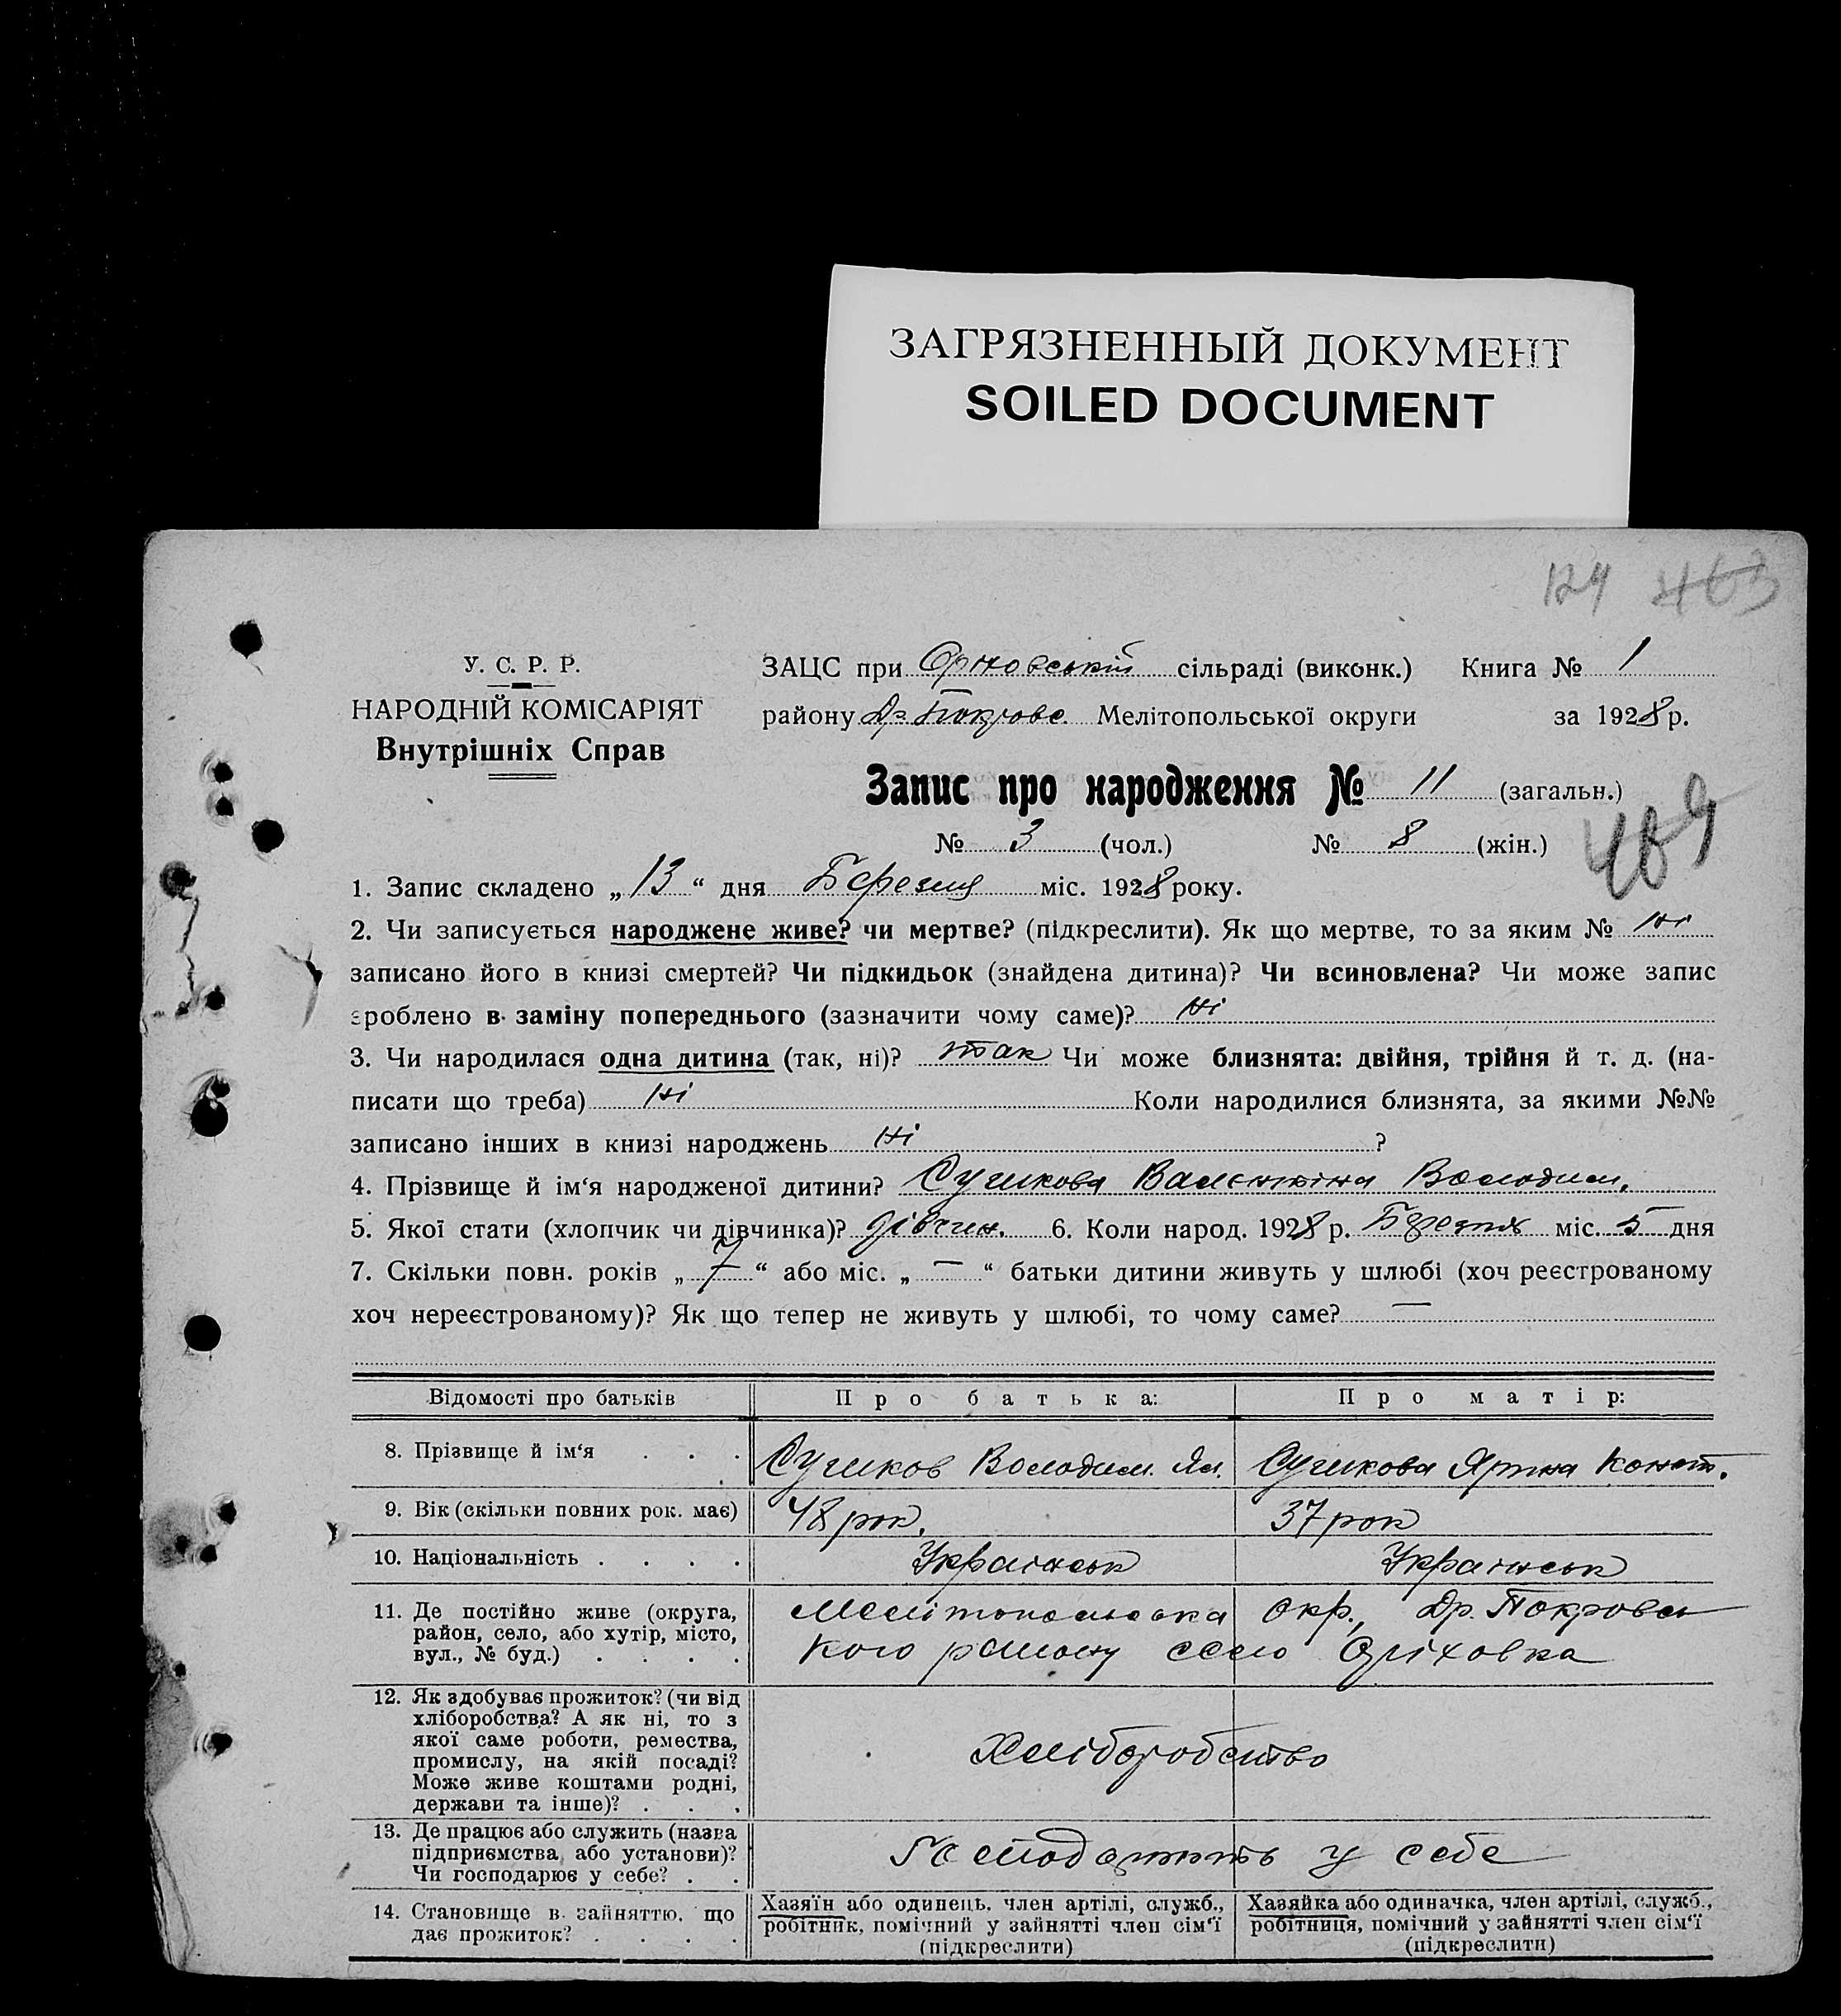 ЗАГРЯЗНЕННЫЙ ДОКУМЕНТ
SOILED DOCUMENT
124 463
У. С. Р. Р.
НАРОДНІЙ КОМІСАРІЯТ
Внутрішніх Справ
ЗАЦС при сільраді (виконк.) Книга № 1
району Др. Покровс Мелітопольської округи за 1928 р.
Запис про народження № 11 (загальн.)
№ 3 (чол.) № 8 (жін.)
469
1. Запис складено „13“ дня Березня міс. 1928 року.
2. Чи записується народжене живе? чи мертве? (підкреслити). Як що мертве, то за яким № ні
записано його в книзі смертей? Чи підкидьок (знайдена дитина)? Чи всиновлена? Чи може запис
зроблено в заміну попереднього (зазначити чому саме)? ні
3. Чи народилася одна дитина (так, ні)? так Чи може близнята: двійня, трійня й т. д. (на-
писати що треба) ні Коли народилися близнята, за якими №№
записано інших в книзі народжень ні ?
4. Прізвище й ім‘я народженої дитини? Сушкова Валєнтіна Володим.
5. Якої стати (хлопчик чи дівчинка)? дівчин. 6. Коли народ. 1928 р. Березня міс. 5 дня
7. Скільки повн. років „ 7 “ або міс. „ — “ батьки дитини живуть у шлюбі (хоч реєстрованому
хоч нереєстрованому)? Як що тепер не живуть у шлюбі, то чому саме? —
Відомості про батьків Про батька: Про матір:
8. Прізвище й ім‘я . . . Сушков Володим. Як. Сушкова Ярина Конст.
9. Вік (скільки повних рок. має) 48 рок. 37 рок
10. Національність . . . . Українськ Українськ
11. Де постійно живе (округа,
район, село, або хутір, місто,
вул., № буд.) . . . .
Мелітопольська окр., Др. Покровсь
кого району село Оріховка
12. Як здобуває прожиток? (чи від
хліборобства? А як ні, то з
якої саме роботи, ремества,
промислу, на якій посаді?
Може живе коштами родні,
держави та інше)? . . .
Хліборобство
13. Де працює або служить (назва
підприємства, або установи)?
Чи господарює у себе? . .
у себе
14. Становище в зайняттю, що
дає прожиток? . . . .
Хазяїн або одинець, член артілі, служб.,
робітник, помічний у зайнятті член сім‘ї
(підкреслити)
Хазяйка або одиначка, член артілі, служб.,
робітниця, помічний у зайнятті член сім‘ї
(підкреслити)